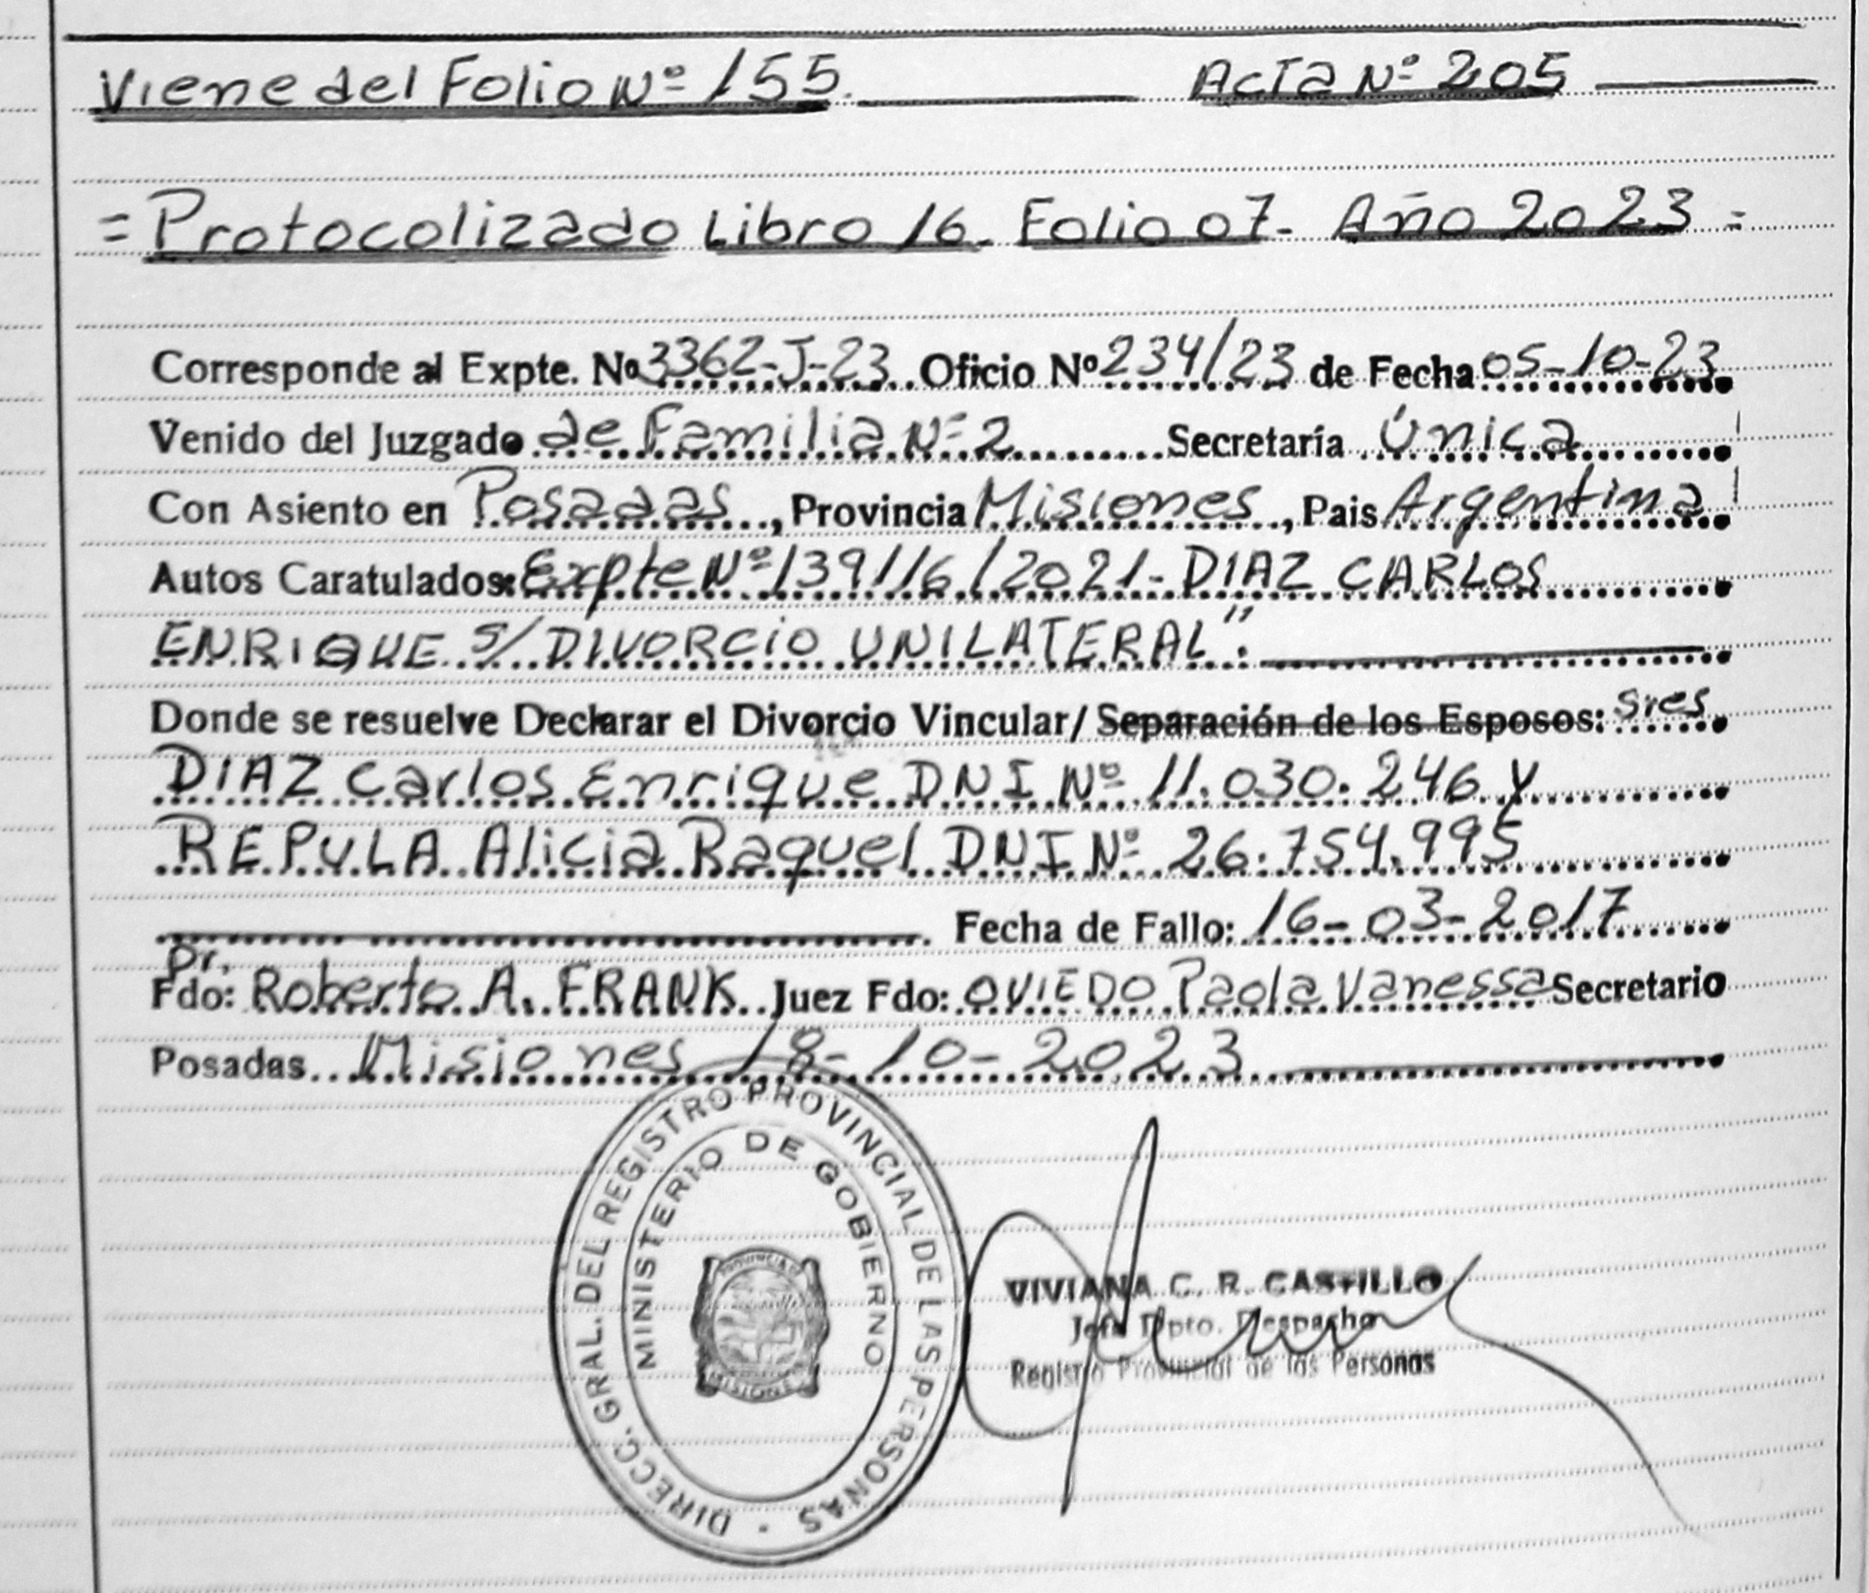 Viene del Folio Nº 155. Acta Nº 205
= Protocolizado Libro 16. Folio 07. Año 2023 =
Corresponde al Expte. Nº 3362-J-23 Oficio Nº 234/23 de Fecha 05-10-23
Venido del Juzgado de Familia Nº 2 Secretaría Única
Con Asiento en Posadas, Provincia Misiones, Pais Argentina
Autos Caratulados: Expte Nº 139116/2021- DIAZ CARLOS
ENRIQUE s/ DIVORCIO UNILATERAL".
Donde se resuelve Declarar el Divorcio Vincular/ Separación de los Esposos: Sres
DIAZ Carlos Enrique DNI Nº 11.030.246 y
REPULA Alicia Raquel DNI Nº 26.754.995
Fecha de Fallo: 16-03-2017
Dr.
Fdo: Roberto A. FRANK Juez Fdo: OVIEDO Paola Vanessa Secretario
Posadas Misiones 18-10-2023
DIRECC. GRAL. DEL REGISTRO PROVINCIAL DE LAS PERSONAS
MINISTERIO DE GOBIERNO
PROVINCIA D
MISIONES
VIVIANA C. R. CASTILLO
Jefe Dpto. Despacho
Registro Provincial de las Personas